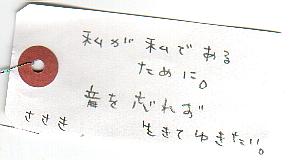 私が私である
ために。
音を忘れず
生きてゆきたい。
ささき